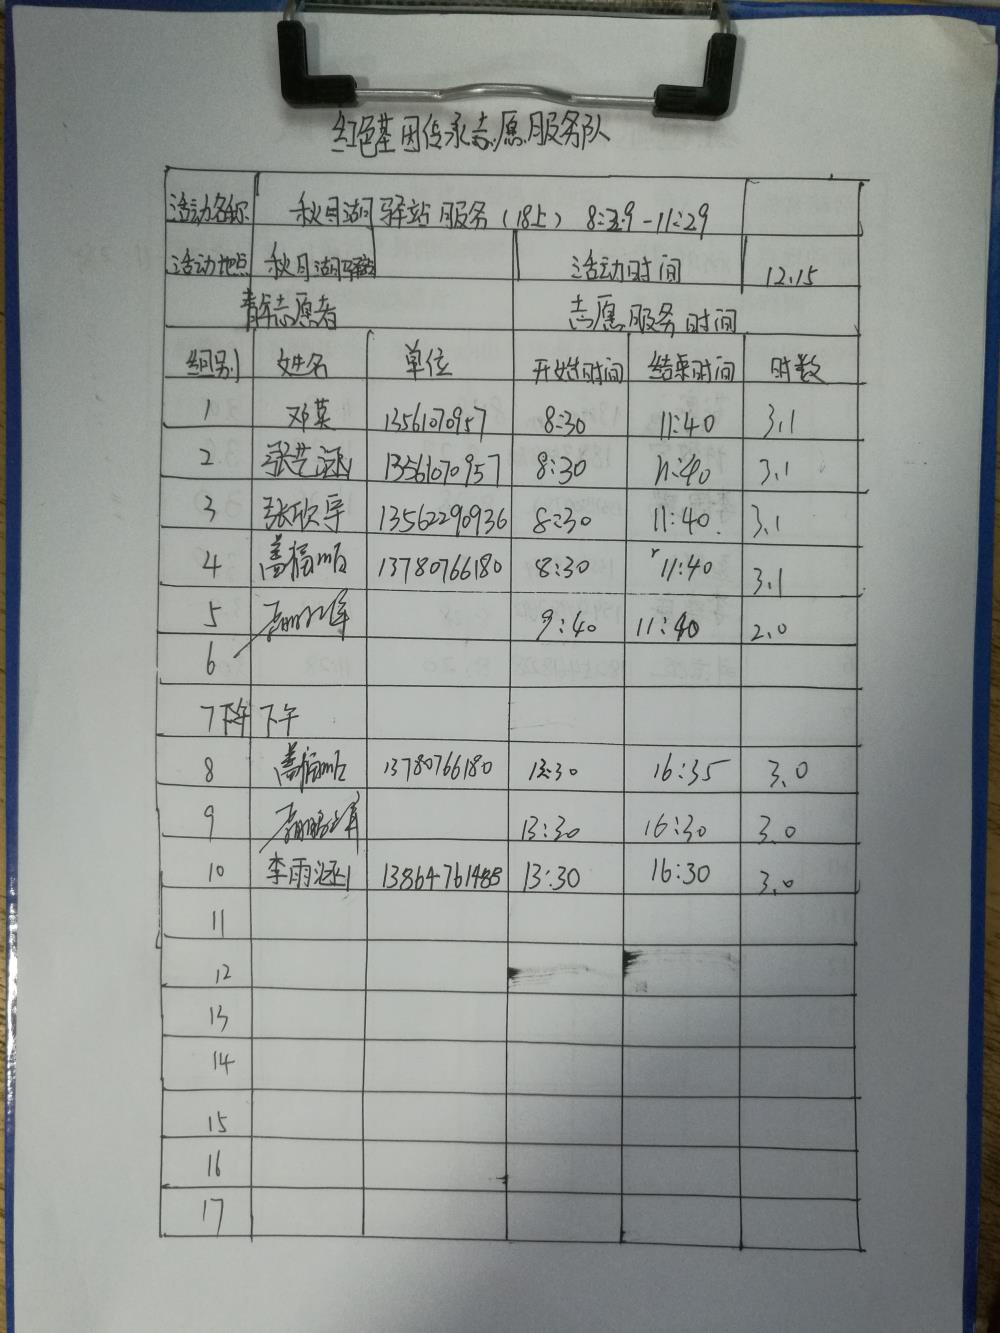 红色基因传承志愿服务队
活动名称 秋月湖驿站服务（18上） 8:29-11:29
活动地点 秋月湖驿站 活动时间 12.15
青年志愿者 志愿服务时间
组别 姓名 单位 开始时间 结束时间 时数
1 邓英 13561070957 8:30 11:40 3.1
2 张艺涵 13561070957 8:30 11:40 3.1
3 张欣宇 13562290936 8:30 11:40 3.1
4 盖福 13780766180 8:30 11:40 3.1
5 9:40 11:40 2.0
6
7 下午 下午
8 盖福 13780766180 13:30 16:35 3.0
9 13:30 16:30 3.0
10 李雨涵 13864761488 13:30 16:30 3.0
11
12
13
14
15
16
17